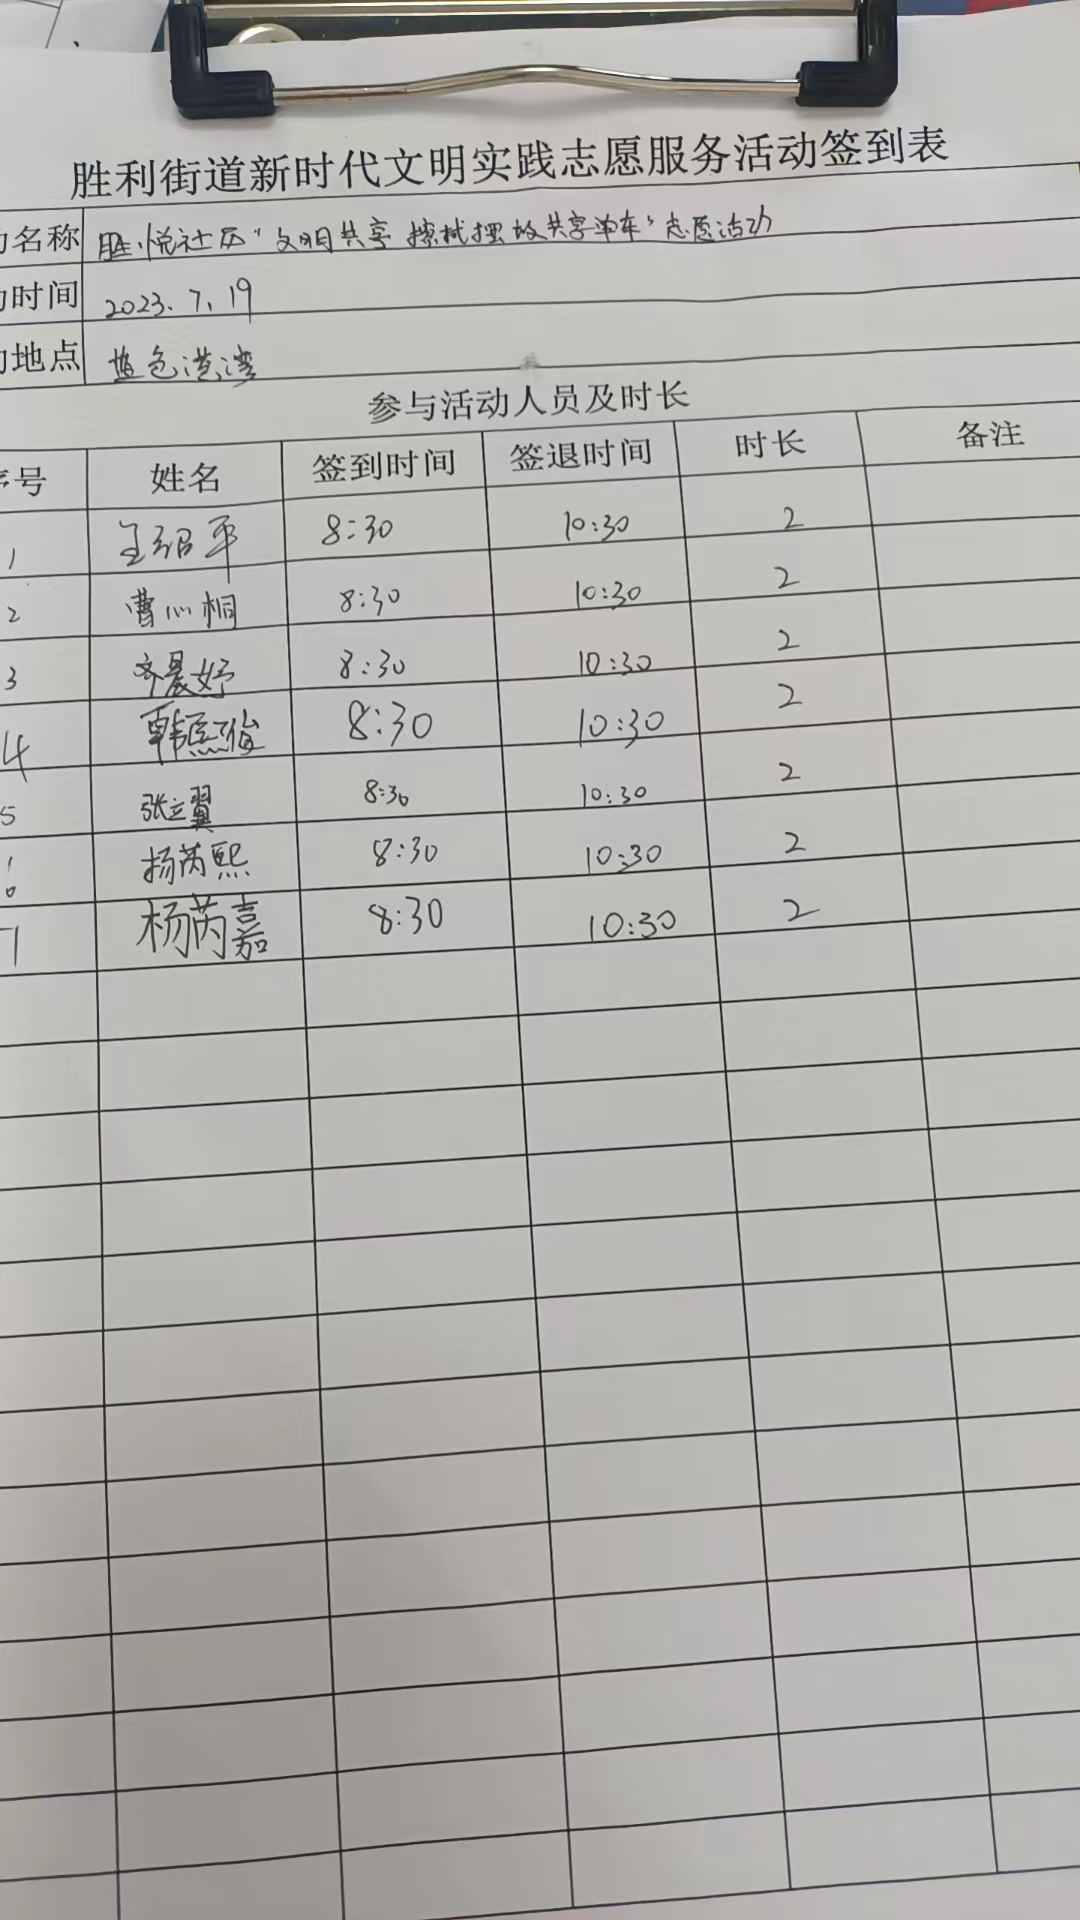 胜利街道新时代文明实践志愿服务活动签到表
名称 胜悦社区"文明共享 擦拭摆放共享单车"志愿活动
时间 2023.7.19
地点 蓝色港湾
参与活动人员及时长
序号 姓名 签到时间 签退时间 时长 备注
1 王绍平 8:30 10:30 2
2 曹心桐 8:30 10:30 2
3 齐晨妤 8:30 10:30 2
4 韩熙 8:30 10:30 2
5 张立翼 8:30 10:30 2
6 杨芮熙 8:30 10:30 2
7 杨芮嘉 8:30 10:30 2